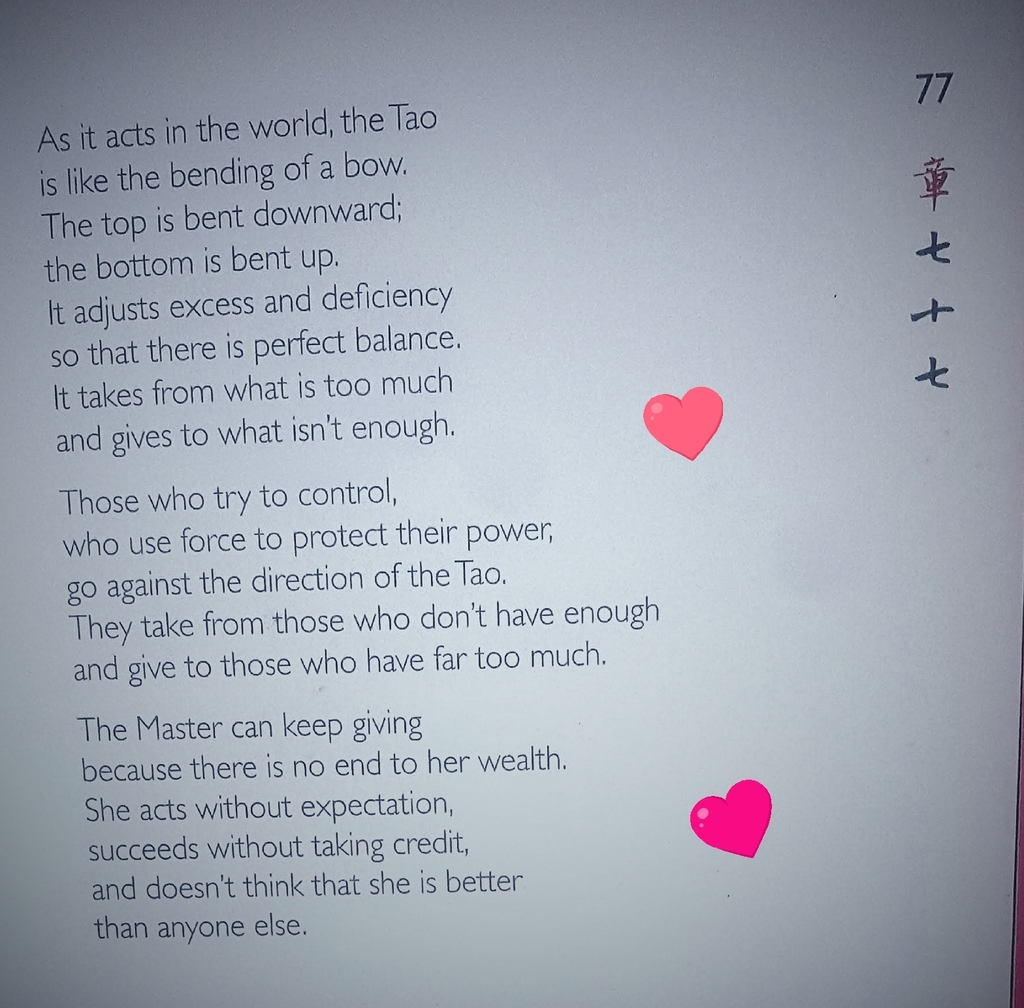 77
章
七
十
七
As it acts in the world, the Tao
is like the bending of a bow.
The top is bent downward;
the bottom is bent up.
It adjusts excess and deficiency
so that there is perfect balance.
It takes from what is too much
and gives to what isn't enough.
Those who try to control,
who use force to protect their power,
go against the direction of the Tao.
They take from those who don't have enough
and give to those who have far too much.
The Master can keep giving
because there is no end to her wealth.
She acts without expectation,
succeeds without taking credit,
and doesn't think that she is better
than anyone else.